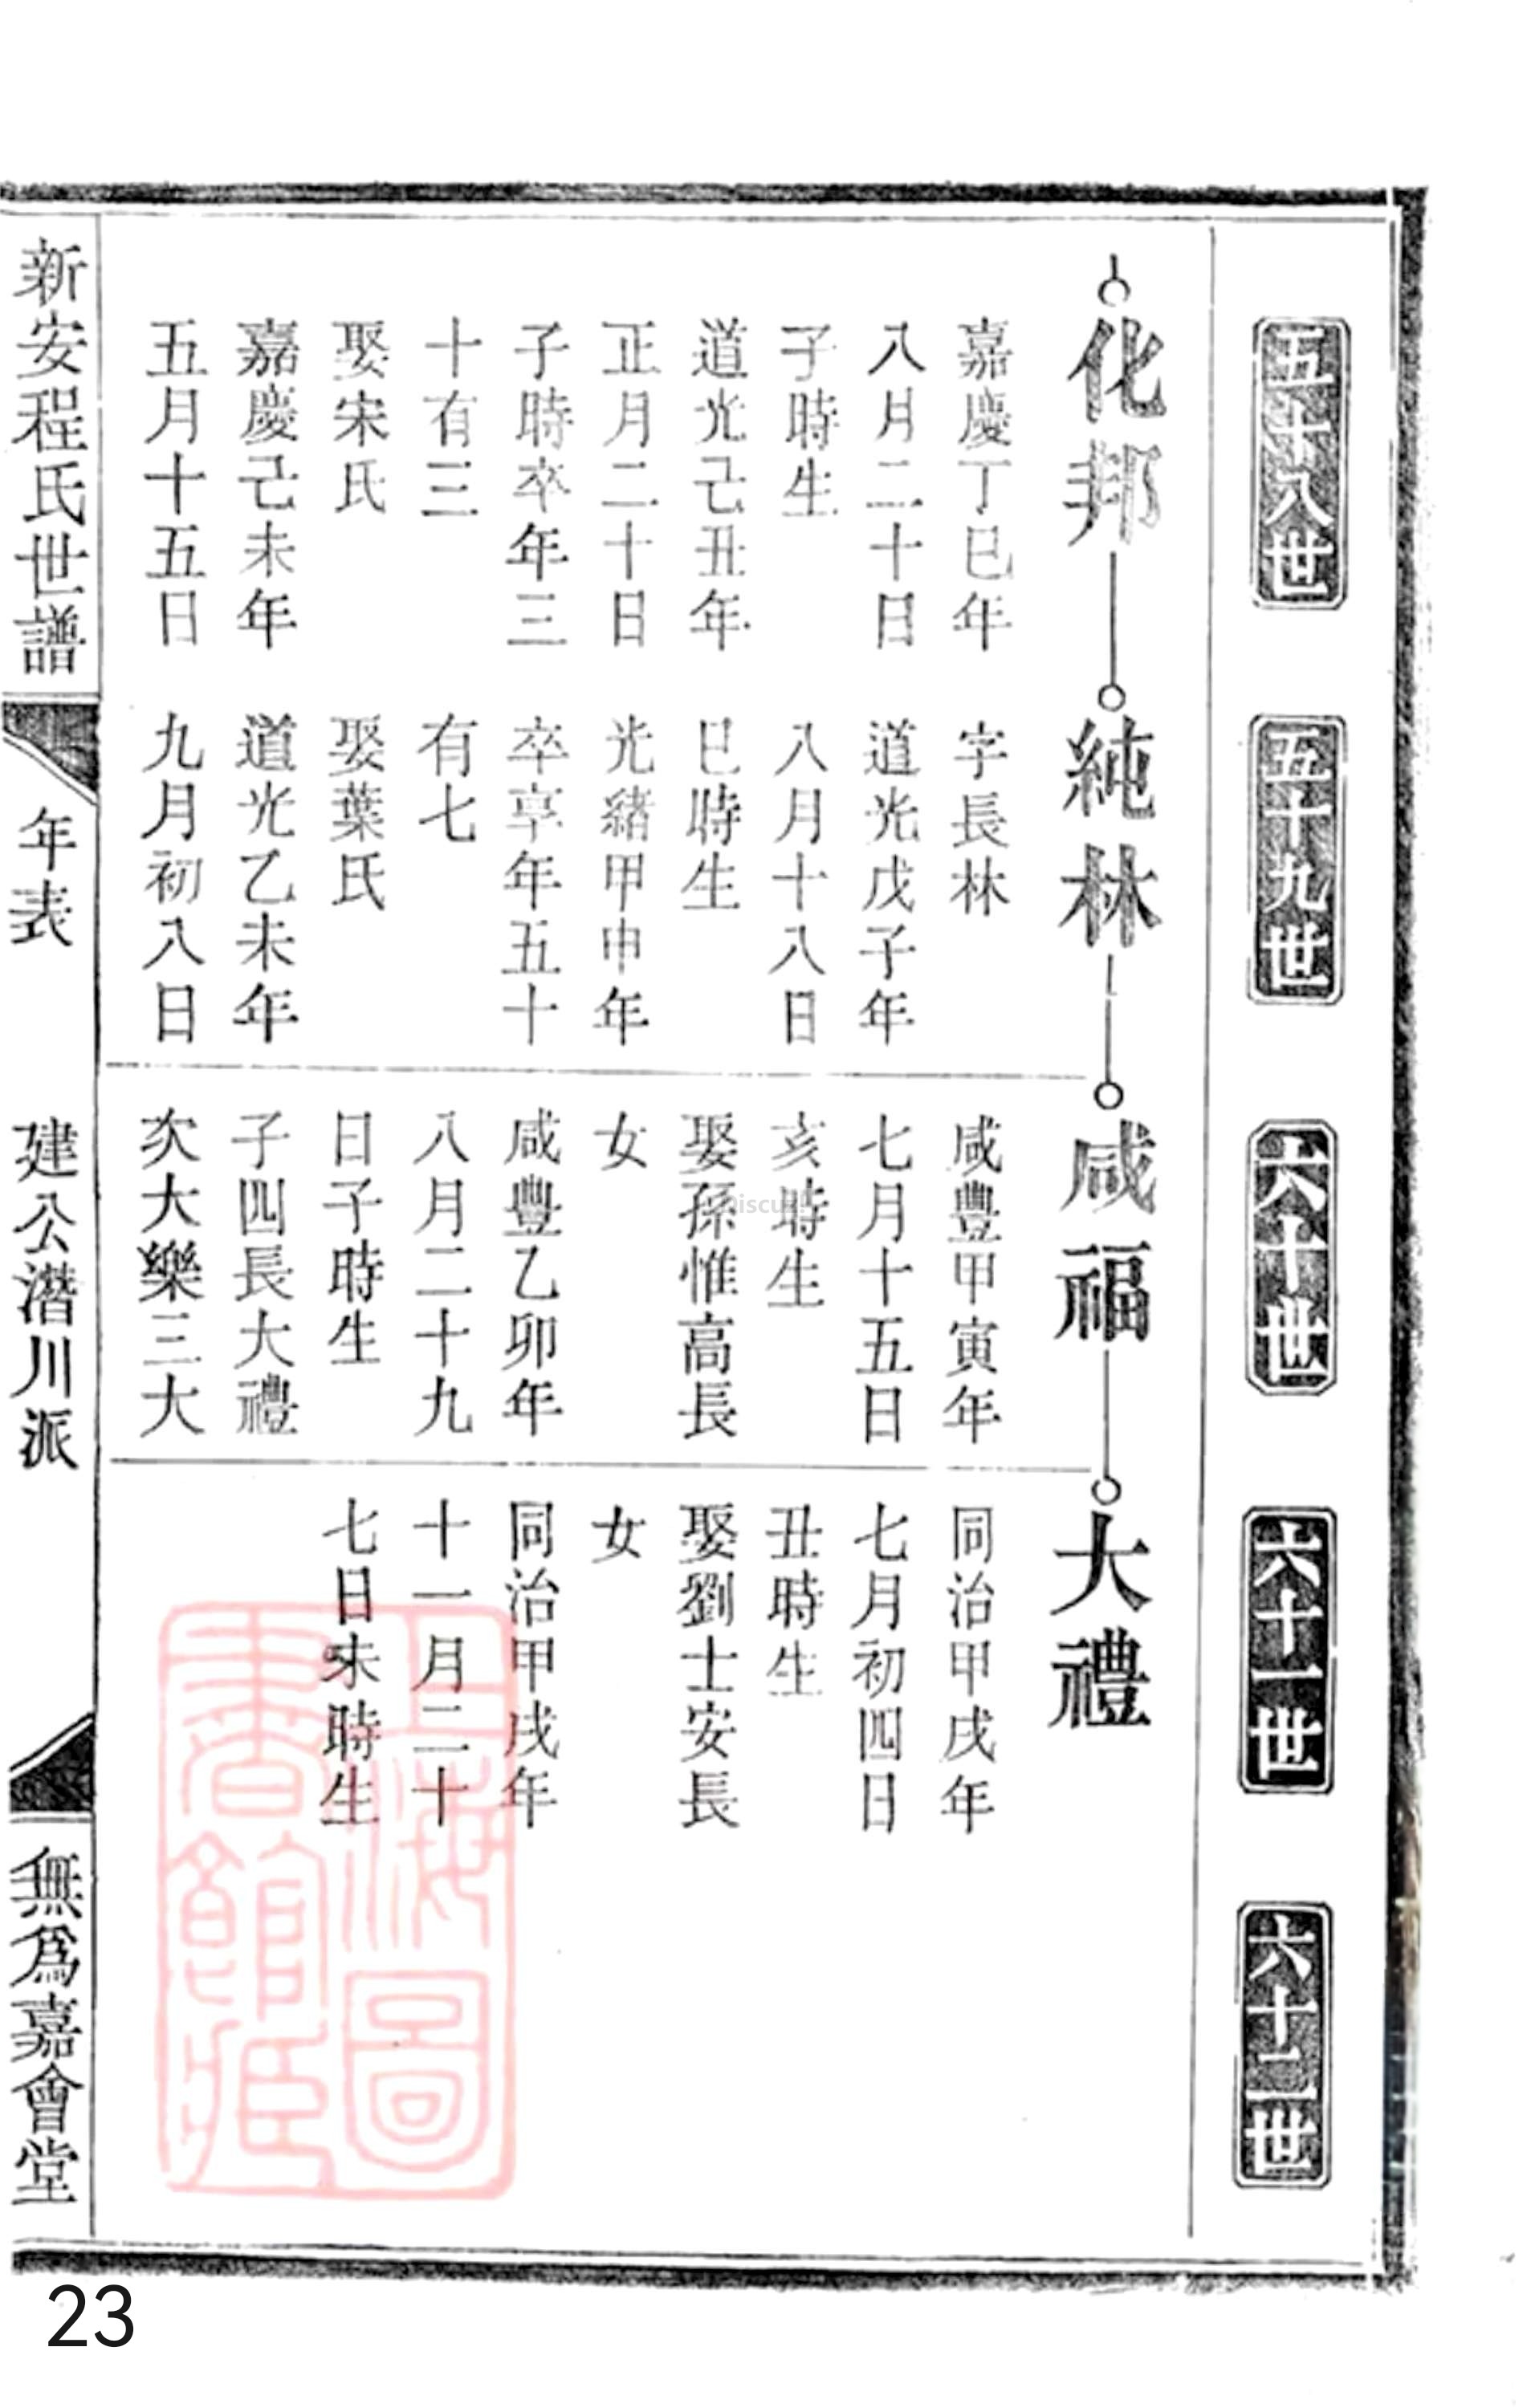 五十八世
五十九世
六十世
六十一世
六十二世
化邦
嘉慶丁巳年
八月二十日
子時生
道光己丑年
正月二十日
子時卒年三
十有三
娶宋氏
嘉慶己未年
五月十五日
純林
字長林
道光戊子年
八月十八日
巳時生
光緒甲申年
卒享年五十
有七
娶葉氏
道光乙未年
九月初八日
咸福
咸豐甲寅年
七月十五日
亥時生
娶孫惟高長
女
咸豐乙卯年
八月二十九
日子時生
子四長大禮
次大樂三大
大禮
同治甲戌年
七月初四日
丑時生
娶劉士安長
女
同治甲戌年
十一月二十
七日未時生
新安程氏世譜
年表
建公潛川派
無為嘉會堂
上海圖
書館藏
23